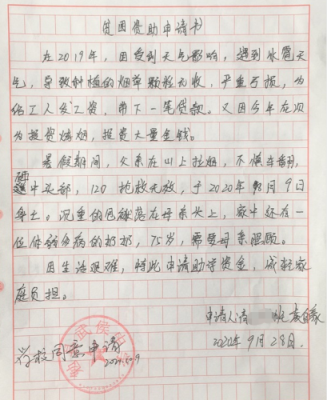 贫困资助申请书
在2019年,因受到天气影响,遇到冰雹天
气,导致种植的烟草颗粒无收,严重亏损,为
给工人发工资,带下一笔贷款。又因今年在次
为投资烤烟,投资大量金钱。
暑假期间,父亲在山上拉烟,不慎车翻,
中头部,120抢救无效,于2020年8月9日
去世。沉重的包袱落在母亲头上,家中还有一
位体弱多病的奶奶,75岁,需要母亲照顾。
因生活艰难,特此申请助学资金,减轻家
庭负担。
申请人
2020年9月28日.
学校同意申请